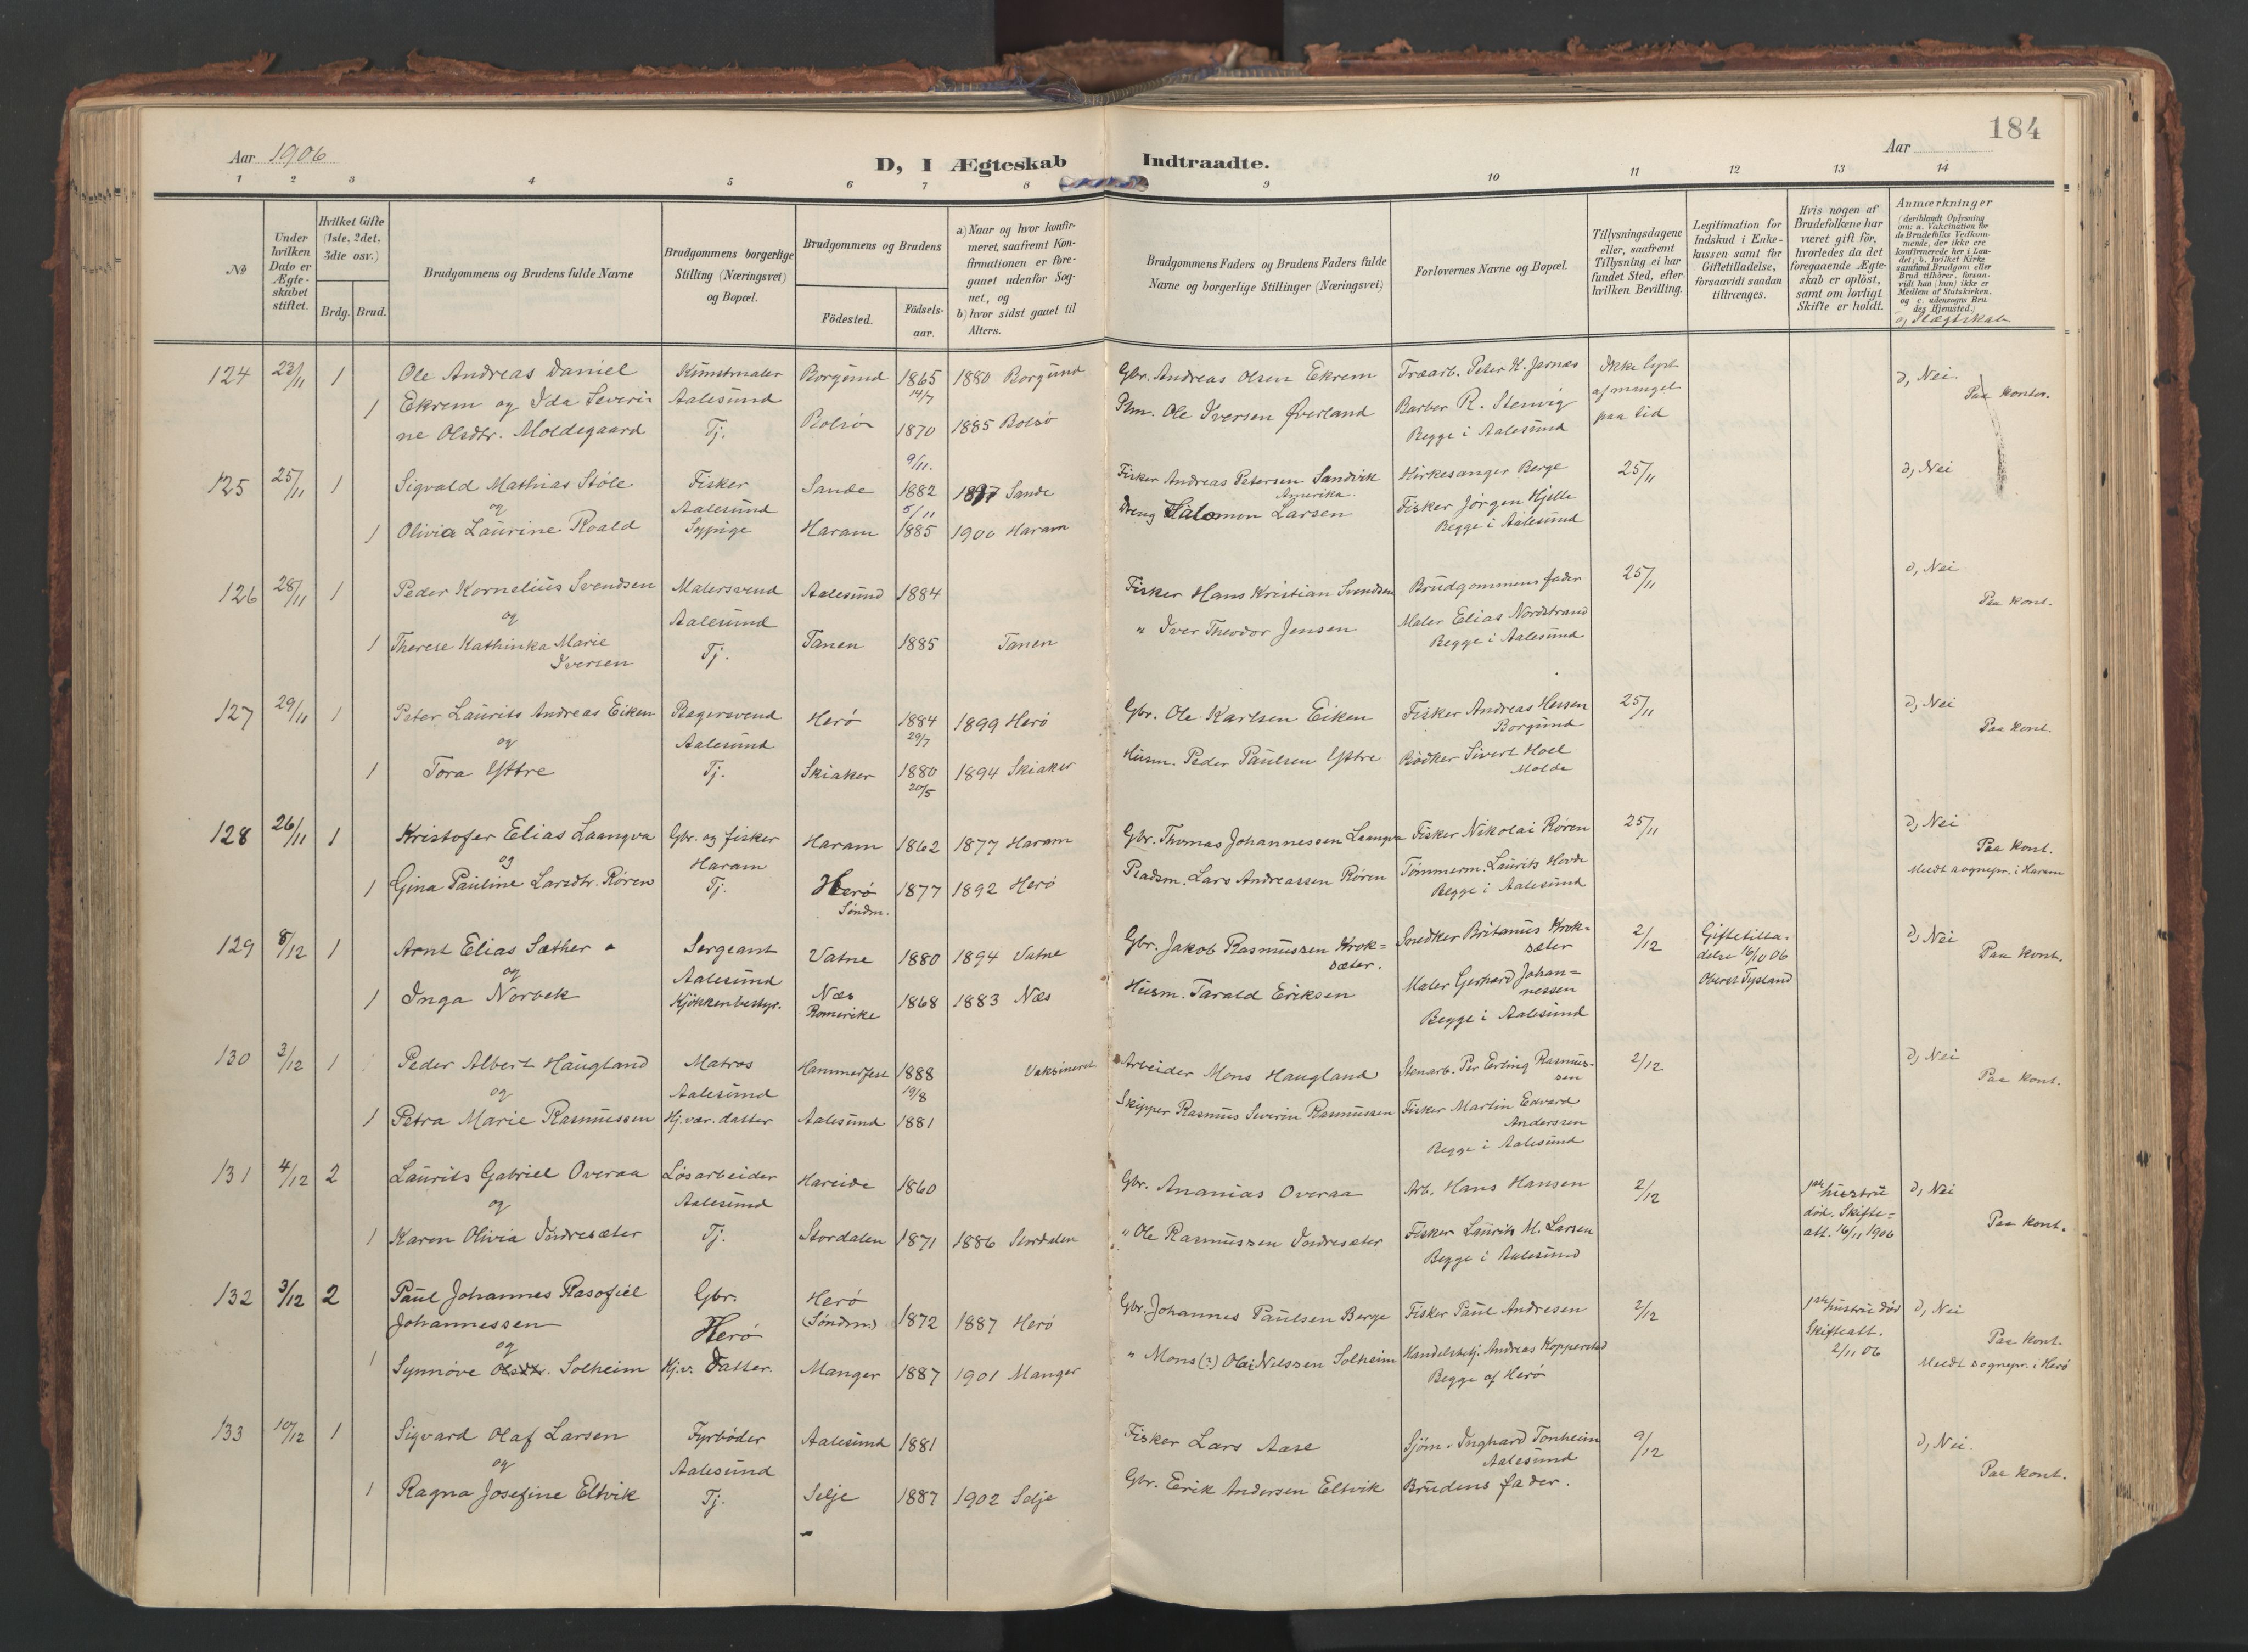 184
Aar 1906
D, I Ægteskab Indtraadte.
Aar
1 2 3 4 5 6 7 8 9 10 11 12 13 14
№
Under hvilken Dato er Ægteskabet stiftet.
Hvilket Gifte (1ste, 2det, 3die osv.)
Brdg. Brud.
Brudgommens og Brudens fulde Navne
Brudgommens borgerlige Stilling (Næringsvei) og Bopæl.
Brudgommens og Brudens
Födested.
Födsels-aar.
a) Naar og hvor konfirmeret, saafremt Konfirmationen er foregaaet udenfor Sognet, og
b) hvor sidst gaaet til Alters.
Brudgommens Faders og Brudens Faders fulde Navne og borgerlige Stillinger (Næringsvei)
Forlovernes Navne og Bopæl.
Tillysningsdagene eller, saafremt Tillysning ei har fundet Sted, efter hvilken Bevilling.
Legitimation for Indskud i Enkekassen samt for Giftetilladelse, forsaavidt saadan tiltrænges.
Hvis nogen af Brudefolkene har været gift för, hvorledes da det foregaaende Ægteskab er oplöst, samt om lovligt Skifte er holdt.
Anmærkninger
(deriblandt Oplysning om: a. Vakcination for de Brudefolks Vedkommende, der ikke ere konfirmerede her i Landet; b. hvilket Kirkesamfund Brudgom eller Brud tilhörer, forsaavidt han (hun) ikke er Medlem af Statskirken, og c. udensogns Bruds Hjemsted.
d, Slægtskab
124 23/11 1 Ole Andreas Daniel Kunstmaler Borgund 1865 1880 Borgund Gbr. Andreas Olsen Ekrem Træarb. Peter K. Jarnæs Ikke lyst d, Nei.
14/7 af mangel Paa kontor.
1 Ekrem og Ida Severi- Aalesund Bolsø Plm. Ole Iversen Øverland Barber R. Stenvig paa tid
ne Olsdtr. Moldegaard Tj. 1870 1885 Bolsø Begge i Aalesund
9/11.
125 25/11 1 Sigvald Mathias Støle Fisker Sande 1882 1897 Sande Fisker Andreas Petersen Sandvik Kirkesanger Berge 25/11 d, Nei
og Aalesund 5/11 Amerika.
1 Olivia Laurine Roald Sypige Haram 1885 1900 Haram Dreng Salomon Larsen Fisker Jørgen Hjelle
Begge i Aalesund
126 28/11 1 Peder Kornelius Svendsen Malersvend Aalesund 1884 Fisker Hans Kristian Svendsen Brudgommens fader 25/11 d, Nei
og Aalesund Paa kont.
1 Therese Kathinka Marie Tanen 1885 Tanen " Iver Theodor Jensen Maler Elias Nordstrand
Iversen Tj. Begge i Aalesund
127 29/11 1 Peter Laurits Andreas Eiken Bagersvend Herø 1884 1899 Herø Gbr. Ole Karlsen Eiken Fisker Andreas Hessen 25/11 d, Nei
og Aalesund 29/7 Borgund Paa kont.
1 Tora Ystre Tj. Skiaker 1880 1894 Skiaker Husm. Peder Paulsen Ystre Bødker Sivert Hoel
20/5 Molde
128 26/11 1 Kristofer Elias Laangva Gbr. og fisker Haram 1862 1877 Haram Gbr. Thomas Johannessen Laangva Fisker Nikolai Røren 25/11 d, Nei
og Haram Paa kont.
1 Gina Pauline Larsdtr. Røren Tj. Herø 1877 1892 Herø Pladsm. Lars Andreassen Røren Tømmerm. Laurits Hovde Meldt sognepr. i Haram
Søndm. Begge i Aalesund
129 8/12 1 Arnt Elias Sæther Sergeant Vatne 1880 1894 Vatne Gbr. Jakob Rasmussen Krok= Snedker Britanus Krok- 2/12 Giftetilla- d, Nei
og Aalesund sæter. sæter delse 16/10 06 Paa kont.
1 Inga Norbek Kjøkkenbestyr. Næs 1868 1883 Næs Husm. Tarald Eriksen Maler Gerhard Johan= Oberst Tysland
Romerike nessen
Begge i Aalesund
130 3/12 1 Peder Albert Haugland Matros Hammerfest 1888 Vaksineret Arbeider Mons Haugland Stenarb. Per Erling Rasmus- 2/12 d, Nei
og Aalesund 19/8 sen Paa kont.
1 Petra Marie Rasmussen Hj. vær. datter Aalesund 1881 Skipper Rasmus Severin Rasmussen Fisker Martin Edvard
Anderssen
Begge i Aalesund
131 4/12 2 Laurits Gabriel Overaa Løsarbeider Hareide 1860 Gbr. Ananias Overaa Arb. Hans Hansen 2/12 1ste hustru d, Nei
og Aalesund død. Skifte= Paa kont.
1 Karen Olivia Indresæter Tj. Stordalen 1871 1886 Stordalen " Ole Rasmussen Indresæter Fisker Laurits M. Larsen att. 16/11 1906
Begge i Aalesund
132 3/12 2 Paul Johannes Rasofiel Gbr. Herø Gbr. Johannes Paulsen Berge Fisker Paul Andresen 2/12 1ste hustru død d, Nei
Johannessen (Søndm) 1872 1887 Herø Skifteatt. Paa kont.
og Herø 2/11 06
1 Synnøve Olsdtr. Solheim Hj. v. Datter. Manger 1887 1901 Manger " Mons (?) Ole Nilssen Solheim Handelsbetj. Andreas Kopperstad Meldt sognepr. i Herø
Begge af Herø
133 10/12 1 Sigvard Olaf Larsen Fyrbøder Aalesund 1881 Fisker Lars Aase Sjøm. Inghard Tonheim 9/12 d, Nei.
og Aalesund Aalesund Paa kont.
1 Ragna Josefine Eltvik Tj. Selje 1887 1902 Selje Gbr. Erik Andersen Eltvik Brudens fader.